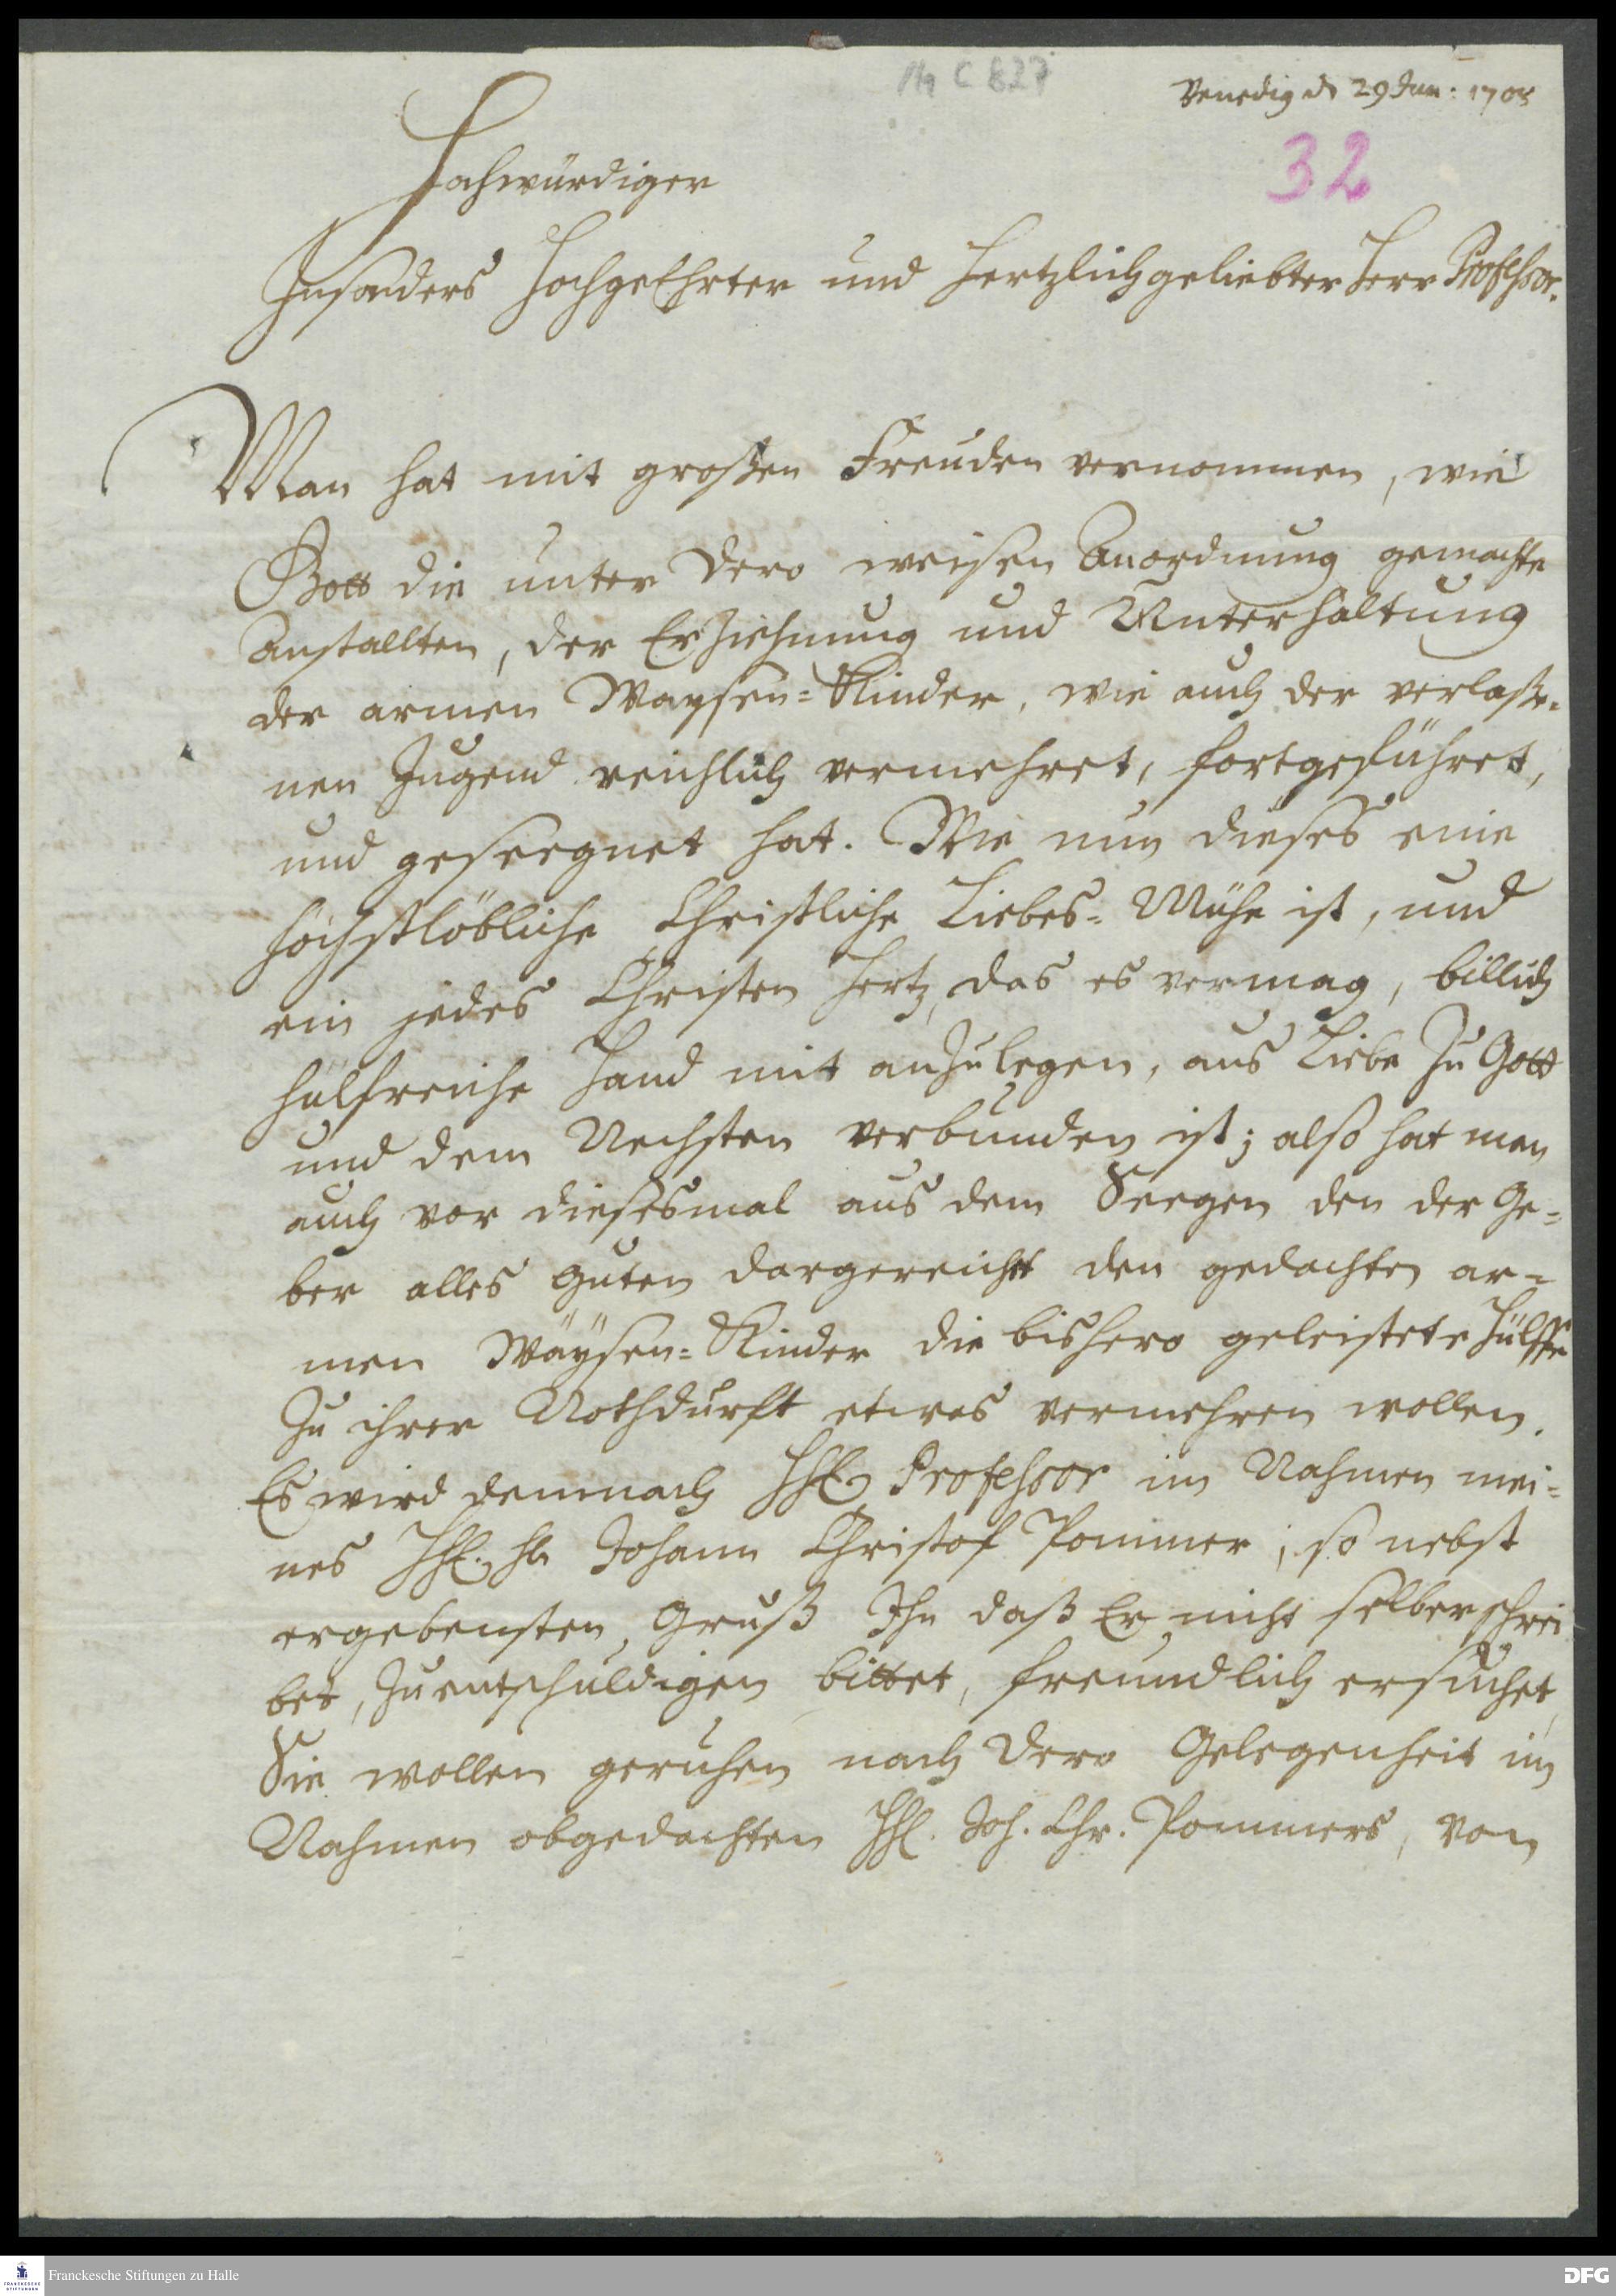 C 827
Venedig d 29 Jun: 1705
32
Hochwürdiger
Insonders HochgeEhrter und Hertzlichgeliebter Herr Professor.
Man hat mit großen Freuden vernommen, wie
Gott die unter Dero weisen Anordnung gemachte
Anstallten, der Erziehung und Unterhaltung
der armen Waysen-Kinder, wie auch der verlaße-
nen Jugend reichlich vermehret, fortgeführet,
und geseegnet hat. Wie nun dieses eine
höchstlöbliche Christliche Liebes-Mühe ist, und
ein jedes Christen Hertz, das es vermag, billich
hülfreiche Hand mit anzulegen, aus Liebe zu Gott
und dem Nechsten verbunden ist; also hat man
auch vor diesesmal aus dem Seegen den der Ge-
ber alles Guten dargereicht den gedachten ar-
men Wäysen-Kinder die bishero geleistete Hülffe
zu ihrer Nothdurft etwas vermehren wollen.
Es wird demnach HhE Professor im Nahmen mei-
nes HhE. Johann Christof Pommer, so nebst
ergebensten Gruß Ihn daß Er nicht selber schrei
bet, zu entschuldigen bittet, freundlich ersuchet,
Sie wollen geruhen nach Dero Gelegenheit im
Nahmen obgedachten Joh. Chr. Pommers, von
Franckesche Stiftungen zu Halle
FRANCKESCHE STIFTUNGEN
DFG